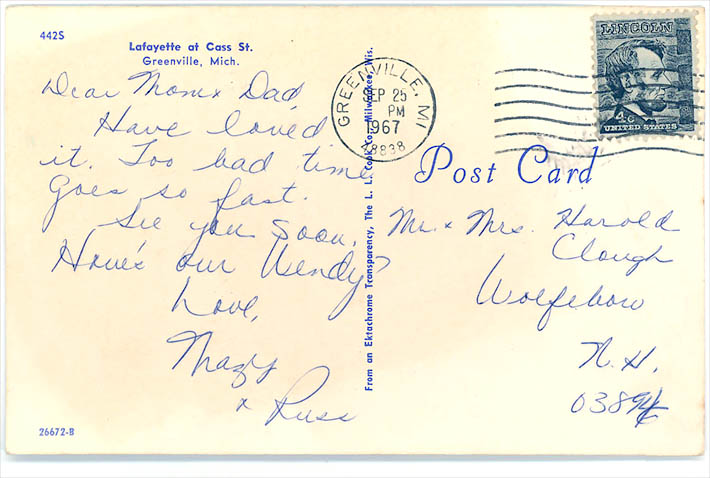 442S
Lafayette at Cass St.
Greenville, Mich.
Dear Mom & Dad
Have loved
it. Too bad time
goes so fast.
See you soon.
How's our Wendy?
Love,
Mazy
& Russ
26672-B
From an Ektachrome Transparency, The L. L. Cook Co. Milwaukee, Wis.
GREENVILLE, MI
SEP 25
PM
1967
48838
LINCOLN
4¢
UNITED STATES
Post Card
Mr. & Mrs. Harold
Clough
Wolfeboro
N. H.
03894